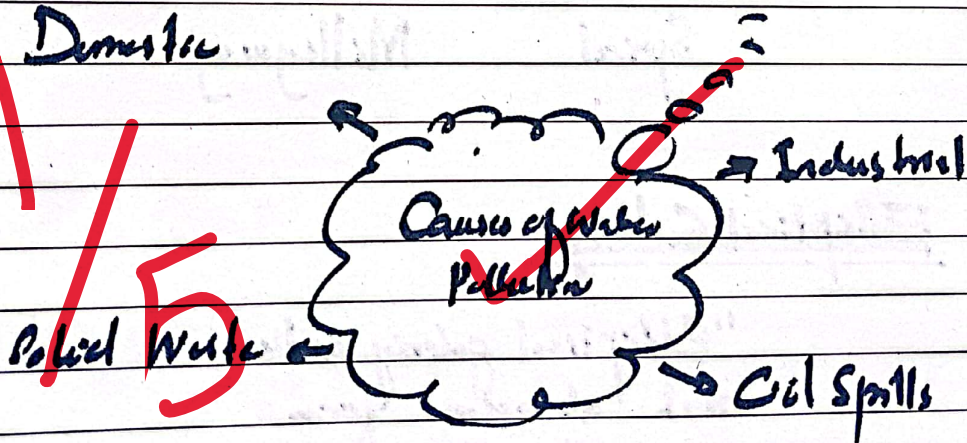 Domestic
Industrial
Causes of Water
Pollution
Solid Waste
Oil Spills
1/5